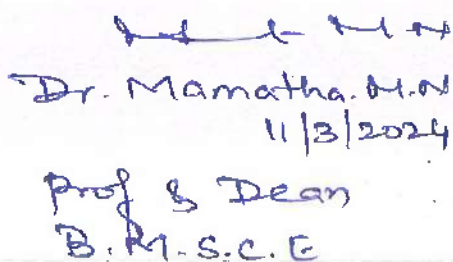 Dr. Mamatha. M.N
11/3/2024
Prof & Dean
B.M.S.C.E